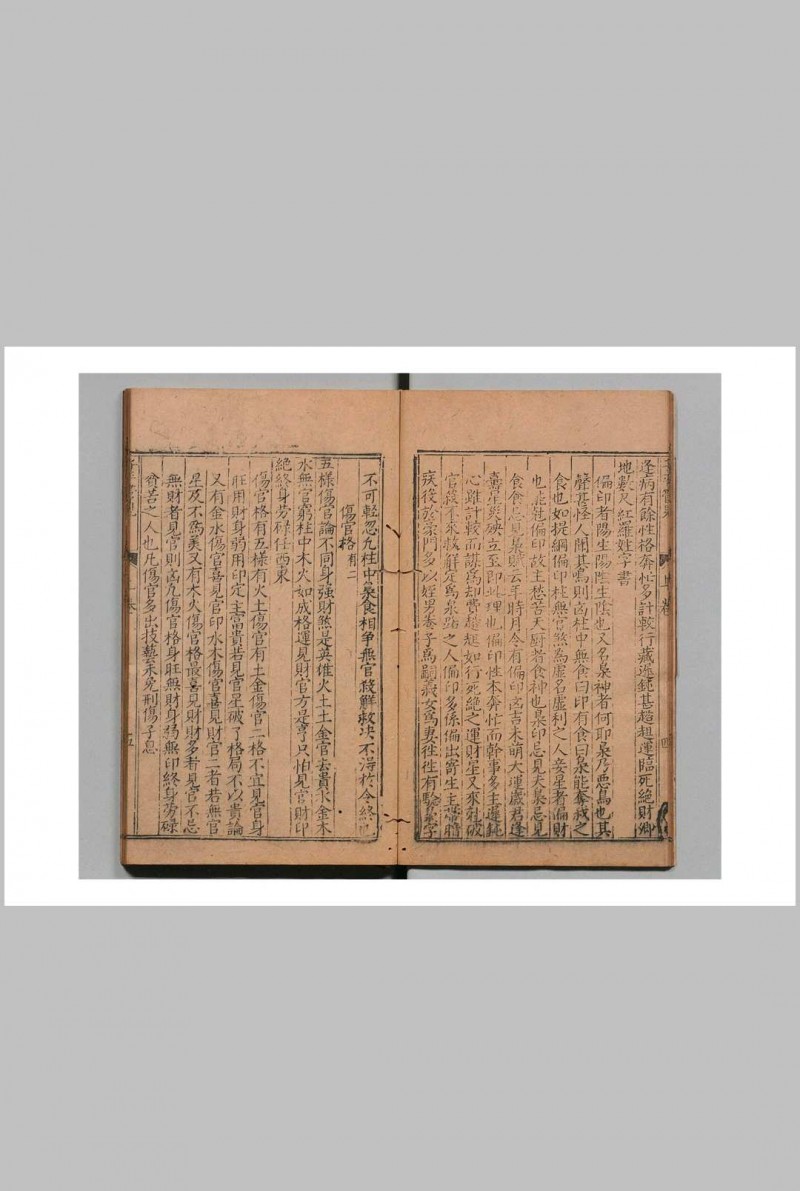 逢病有餘性格奔忙多計較行藏遲鈍甚趑趄運臨死絕財鄉
地數尺紅羅姓字書
偏印者陽生陽陰生陰也又名梟神者何耶梟乃惡鳥也其
聲甚怪人聞其鳴則凶柱中無食曰印有食曰梟能奪我之
食也如提綱偏印柱無官煞為虛名虛利之人妾星者偏財
也能剋偏印故主愁苦天厨者食神也梟印忌見夫梟忌見
食食忌見梟賦云年時月令有偏印吉未萌大運歲君逢
壽星災殃立至即此理也偏印性本奔忙而幹事多主遲鈍
心雖計較而謀為却費趑趄如行死絕之運財星又來剋破
官煞不來救解定為泉路之人偏印多係偏出寄生主常膽
疾後於豪門多以姪男養子為嗣義女為妻徃徃有驗梟字
不可輕忽九柱中梟食相爭無官殺解救决不得於令終也
傷官格有二
五樣傷官論不同身強財煞是英雄火土土金官去貴水金木
水無官窮柱中木火如成格運見財官方是亨只怕見官財印
絕終身劳碌任西東
傷官格有五樣有火土傷官有土金傷官二格不宜見官身
旺用財身弱用印定主富貴若見官星破了格局不以貴論
又有金水傷官喜見官印水木傷官喜見財官二者若無官
星反不為美又有木火傷官格最喜見財財多者見官不忌
無財者見官則凶九傷官格身旺無財身弱無印終身劳碌
貧苦之人也凡傷官多出技藝未免刑傷子息
上卷
四
五